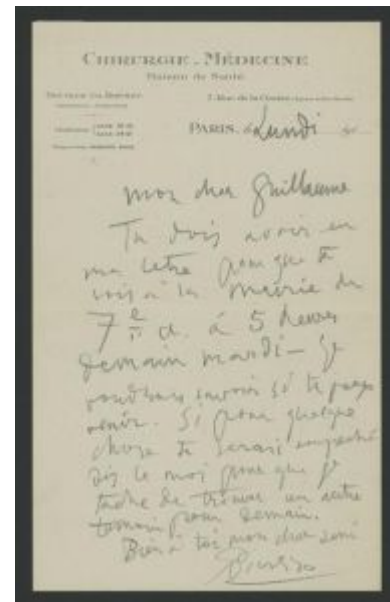 CHIRURGIE - MÉDECINE
Maison de Santé
PARIS, le Lundi
mon cher Guillaume
Tu dois avoir eu
ma letre pour que tu
sois à la mairie du
7e a. à 5 heures
demain mardi — Je
voudrais savoir si tu peux
venir. Si pour quelque
chose tu serais empeché
dis le moi pour que je
tache de trouver un autre
temoin pour demain.
Bien à toi mon cher ami
Picasso